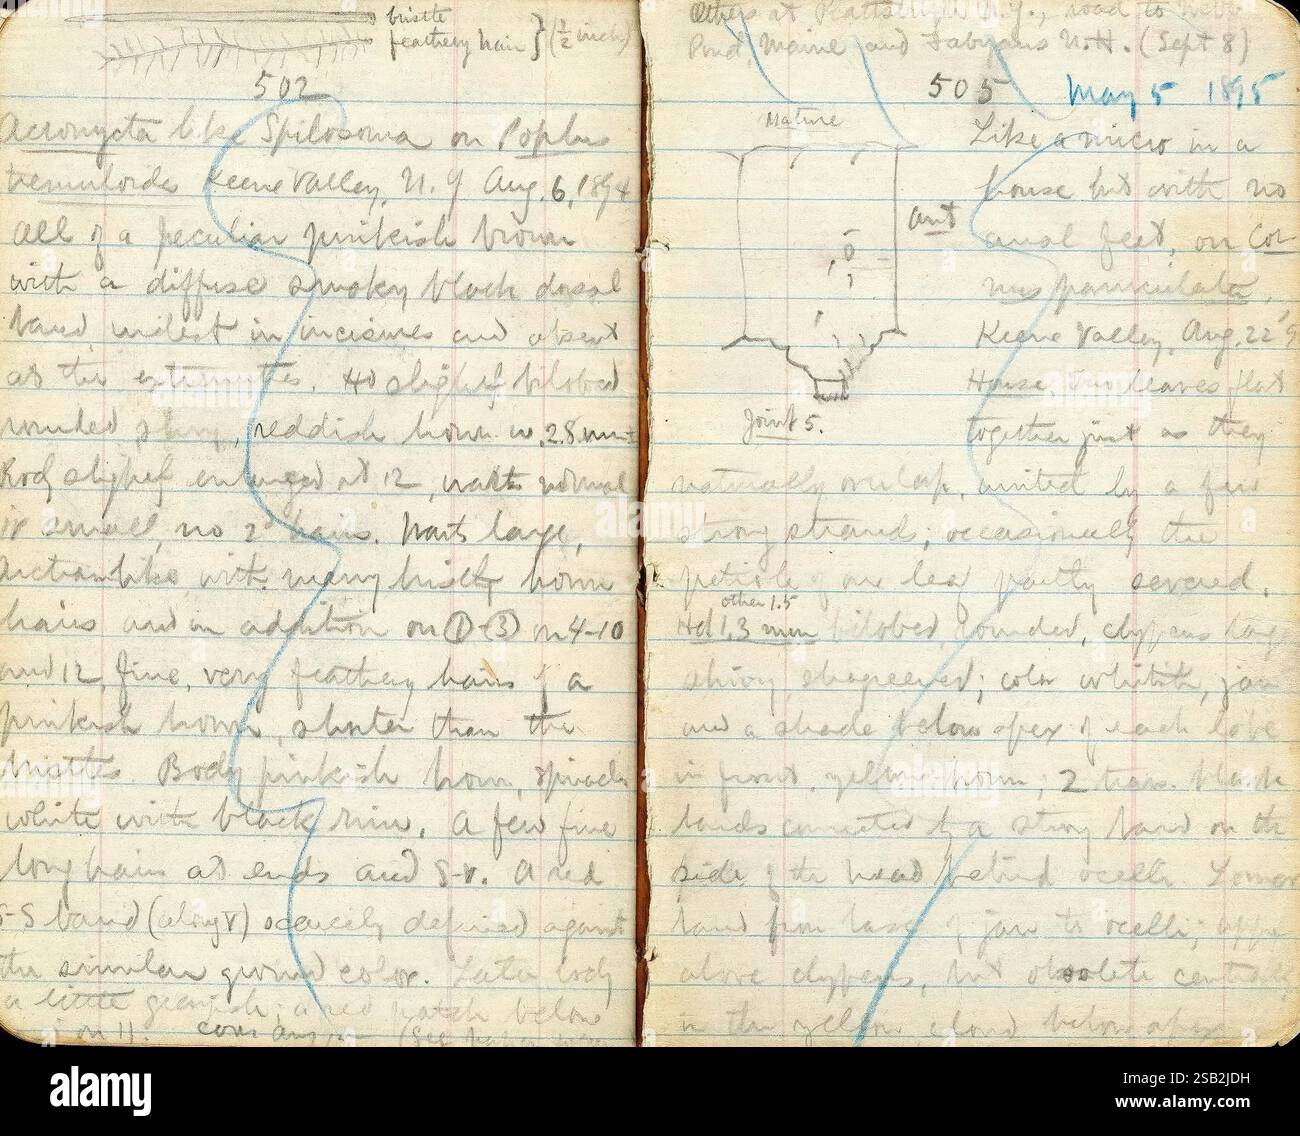 bristle
feathery hair } (1/2 inch)
502
Acronycta like Spilosoma on Poplus
tremuloides Keene Valley, N.Y Aug. 6, 1894
All of a peculiar pinkish brown
with a diffuse smoky black dorsal
band, widest in incisures and absent
at the extremities. Hd slightly bilobed
rounded shiny, reddish brown w. 2.8 mm
Body slightly enlarged at 12, warts normal
iv small, no 2° hairs. Warts large,
Arctian like with many bristly brown
hairs and in addition on ①-③ on 4-10
and 12, fine, very feathery hairs of a
pinkish brown, shorter than the
bristles. Body pinkish brown, spiracles
white with black rim. A few fine
long hairs at ends and S-v. A red
S-S band (along v) scarcely defined against
the similar ground color. Later body
a little grayish; a red patch below
on 11. (See
Others at Plattsburgh N.Y., road to Webb
Pond, Maine and Fabyans N.H. (Sept 8)
505 May 5 1895
Mature
Like a micro in a
house but with no
ant
anal feet, on Cor
nus paniculata,
Keene Valley, Aug. 22 '9
House, Two leaves flat
Joint 5.
together just as they
naturally overlap, united by a few
strong strands; occasionally the
petiole of one leaf partly severed.
other 1.5
Hd 1.3 mm bilobed, rounded, clypeus large
shiny, shagreened; color whitish, jaw
and a shade below apex of each lobe
in front yellow brown; 2 trans. black
bands connected by a strong band on the
side of the head behind ocelli. Lower
band from base of jaw to ocelli; upper
above clypeus, but obsolete centrally
in the yellow cloud below apex